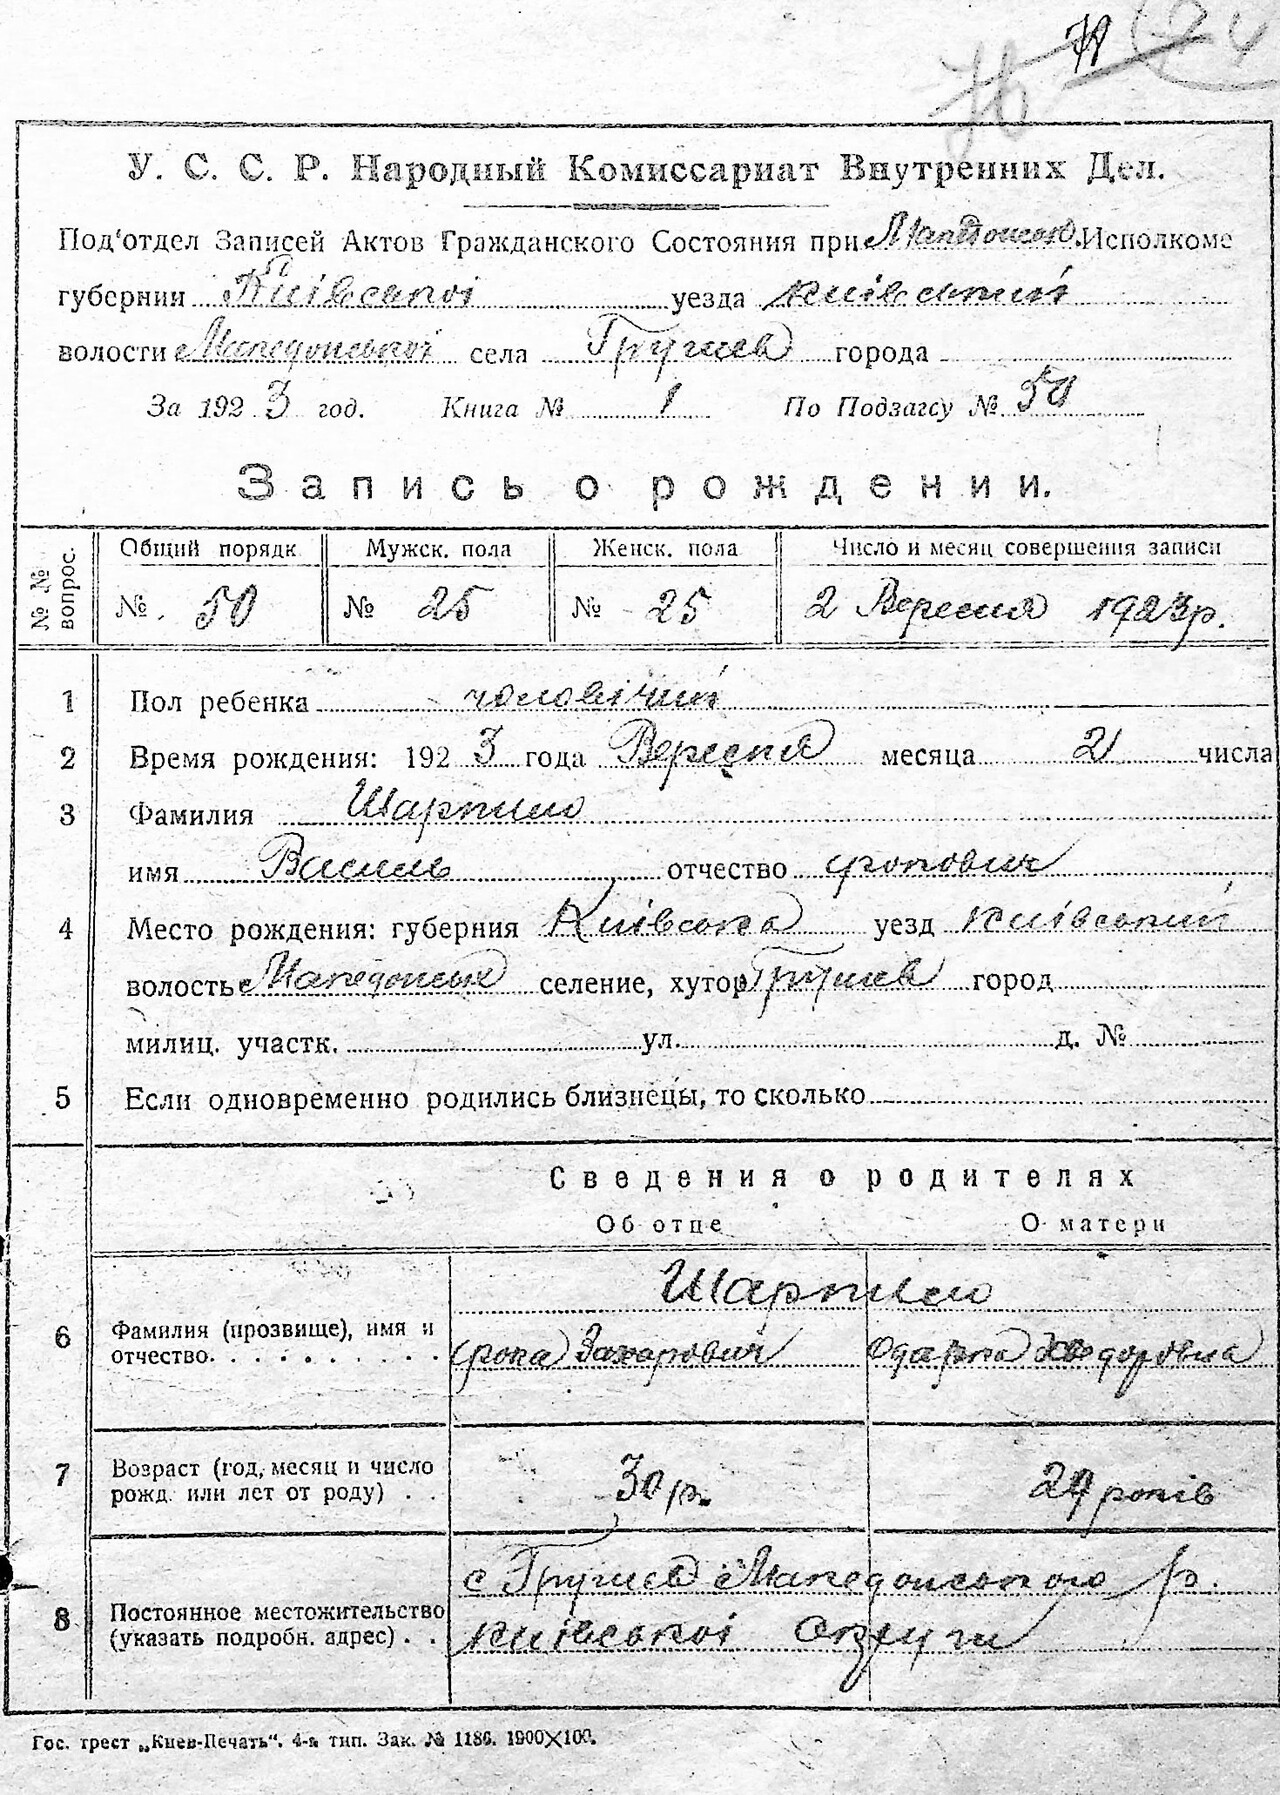 78
У. С. С. Р. Народный Комиссариат Внутренних Дел.
Под'отдел Записей Актов Гражданского Состояния при Македонськ. Исполкоме
губернии Київської уезда київський
волости Македонської села Грушев города
За 1923 год. Книга № 1 По Подзагсу № 50
Запись о рождении.
№ № вопрос. Общий порядк Мужск. пола Женск. пола Число и месяц совершения записи
№ 50 № 25 № 25 2 Вересня 1923 р.
1 Пол ребенка чоловічий
2 Время рождения: 1923 года Вересня месяца 21 числа
3 Фамилия Шарпило
имя Василь отчество
4 Место рождения: губерния Київська уезд київський
волость Македонськ селение, хутор Грушев город
милиц. участк. ул. д. №
5 Если одновременно родились близнецы, то сколько
Сведения о родителях
Об отце О матери
Шарпило
6 Фамилия (прозвище), имя и
отчество. Захарович Одарка Хведоровна
7 Возраст (год, месяц и число
рожд. или лет от роду) 30 р. 29 років
с Грушев Македонського р.
8 Постоянное местожительство
(указать подробн. адрес) київської округи
Гос. трест „Киев-Печать". 4-я тип. Зак. № 1186. 1900×100.